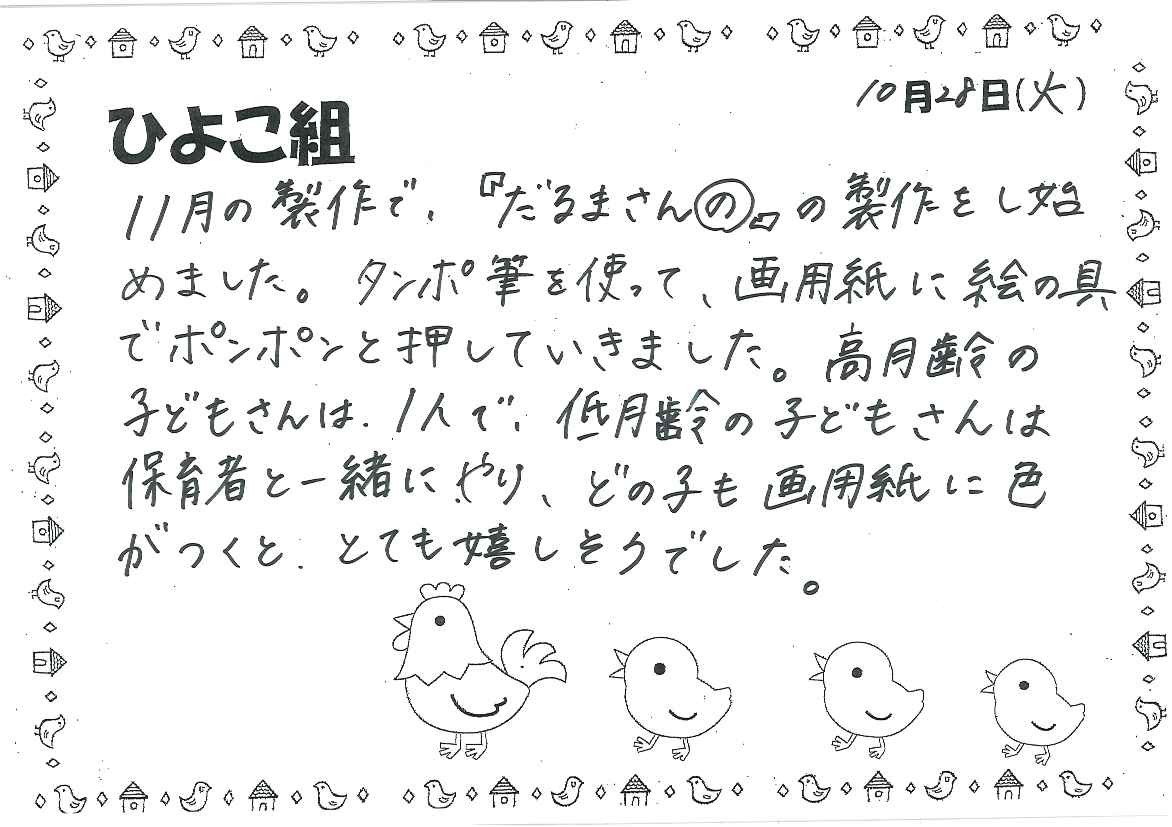 10月28日(火)
ひよこ組
11月の製作で、『だるまさんの』の製作をし始
めました。タンポ筆を使って、画用紙に絵の具
でポンポンと押していきました。高月齢の
子どもさんは、1人で、低月齢の子どもさんは
保育者と一緒にやり、どの子も画用紙に色
がつくと、とても嬉しそうでした。